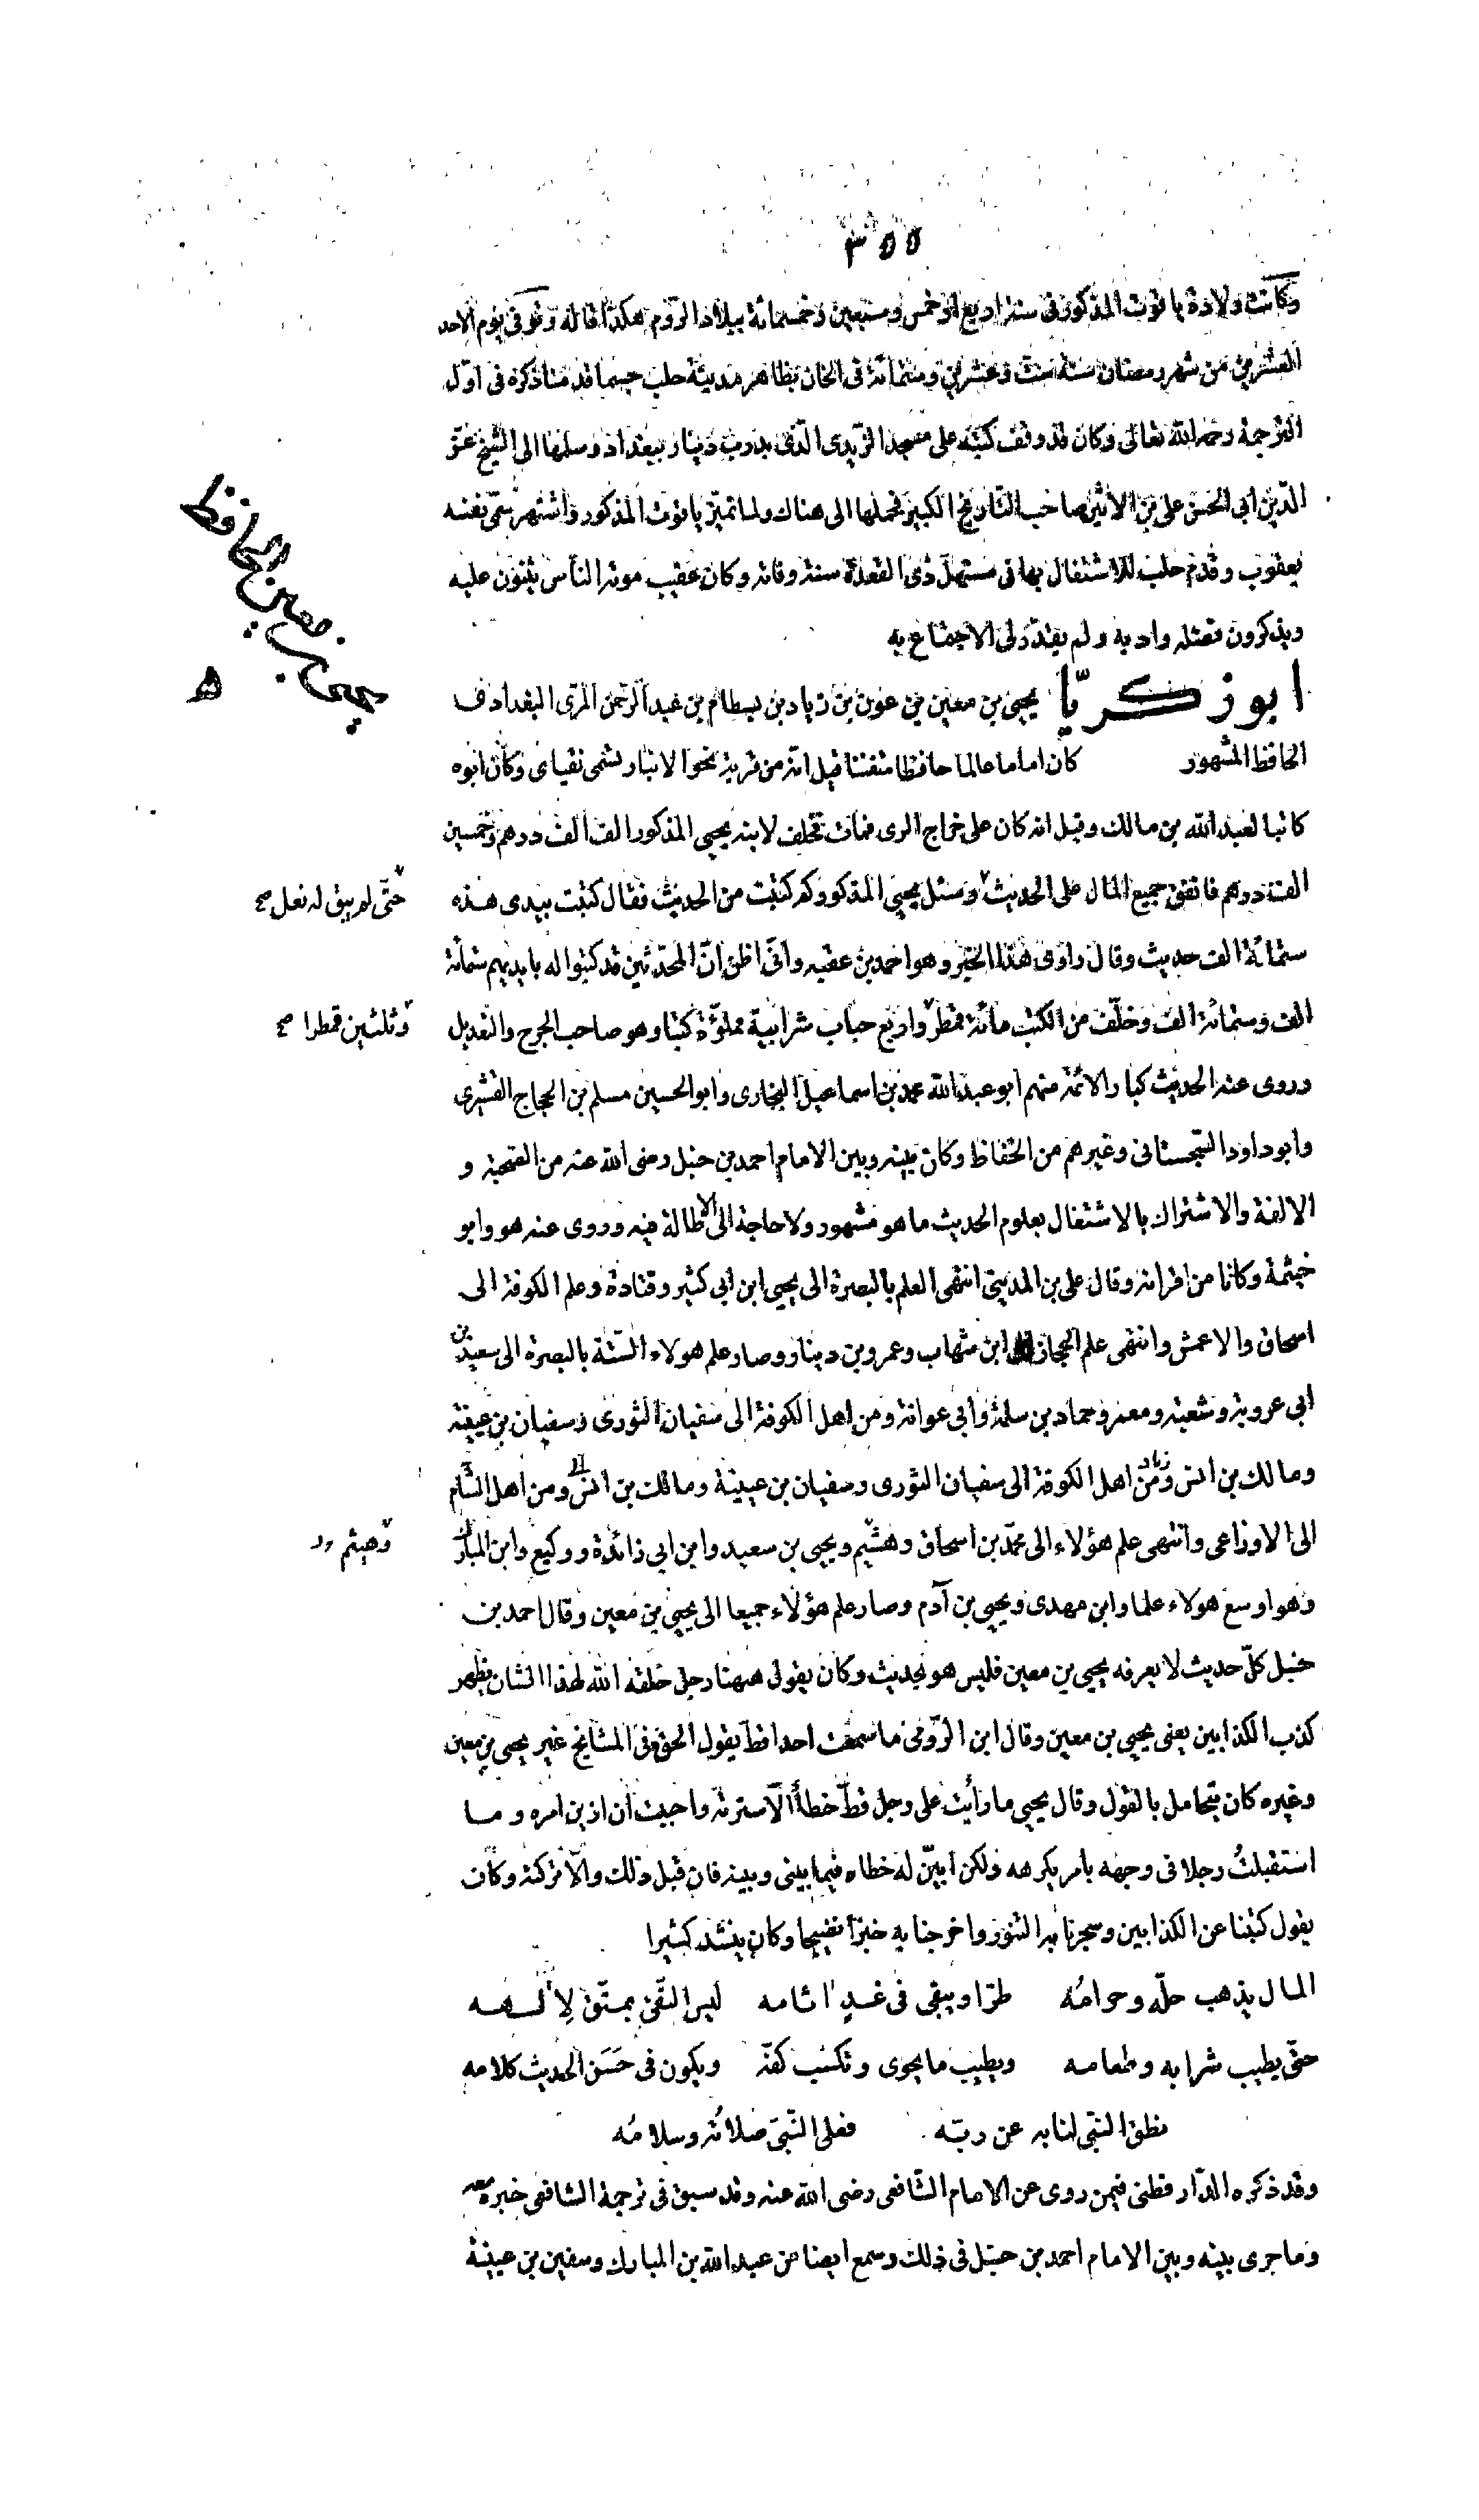 ٣٥٥
وكانت ولادة ياقوت المذكور فى سنة اربع او خمس وسبعين وخمسمائة ببلاد الروم هكذا قاله وتوفى يوم الاحد
العشرين من شهر رمضان سنة ست وعشرين وستمائة فى الخان بظاهر مدينة حلب حسبما قدمنا ذكره فى اوّل
الترجمة رحمه الله تعالى وكان قد وقف كتبه على مسجد الزيدى الذى بدرب دينار ببغداد وسلمها الى الشيخ عزّ
الدّين ابى الحسن على بن الاثير صاحب التاريخ الكبير فحملها الى هناك ولما تميّز ياقوت المذكور واشتهر سمّى نفسه
يعقوب وقدم حلب للاشتغال بها فى مستهلّ ذى القعدة سنة وفاته وكان عقيب موته الناس يثنون عليه
ويذكرون فضله وادبه ولم يقدّر لى الاجتماع به
يحيى بن معين الحافظ
ه
ابو زكريّا يحيى بن معين بن عون بن زياد بن بسطام بن عبد الرّحمن المرّى البغدادى
الحافظ المشهور كان اماما عالما حافظا متقنا قيل انّه من قرية نحو الانبار تسمى نقياى وكان ابوه
كاتبا لعبد الله بن مالك وقيل انه كان على خراج الرى فمات فخلف لابنه يحيى المذكور الف الف درهم وخمسين
الف درهم فانفق جميع المال على الحديث وسئل يحيى المذكور كم كتبت من الحديث فقال كتبت بيدى هذه
حتّى لم يبق له نعل صح
ستمائة الف حديث وقال راوى هذا الخبر وهو احمد بن عقبه وانّى اظن انّ المحدّثين قد كتبوا له بايديهم ستمائة
الف وستمائة الف وخلّف من الكتب مائة قمطر واربع حباب شرابية مملوّة كتبا وهو صاحب الجرح والتعديل
وثلثين قمطرا صح
وروى عنه الحديث كبار الائمّة منهم ابو عبد الله محمد بن اسماعيل البخارى وابو الحسين مسلم بن الحجاج القشيرى
وابو داود السّجستانى وغيرهم من الحفاظ وكان بينه وبين الامام احمد بن حنبل رضى الله عنه من الصحبة و
الالفة والاشتراك بالاشتغال بعلوم الحديث ما هو مشهور ولا حاجة الى الاطالة فيه وروى عنه هو وابو
خيثمة وكانا من اقرانه وقال على بن المدينى انتهى العلم بالبصرة الى يحيى ابن ابى كثير وقتادة وعلم الكوفة الى
اسحاق والاعمش وانتهى علم الحجاز الى ابن شهاب وعمرو بن دينار وصار علم هولاء الستّة بالبصرة الى سعيد بن
ابى عروبة وشعبة ومعمر وحماد بن سلمة وابى عوانة ومن اهل الكوفة الى سفيان الثورى وسفيان بن عيينة
ومالك بن انس ومن اهل الكوفة الى سفيان الثورى وسفيان بن عيينة ومالك بن انس ومن اهل الشام
الى الاوزاعى وانتهى علم هؤلاء الى محمّد بن اسحاق وهشيم ويحيى بن سعيد وابن ابى زائدة ووكيع وابن المبارك
وهيثم
وهو اوسع هولاء علما وابن مهدى ويحيى بن آدم وصار علم هؤلاء جميعا الى يحيى بن معين وقال احمد بن
حنبل كلّ حديث لا يعرفه يحيى بن معين فليس هو بحديث وكان يقول ههنا رجل خلقه الله لهذا الشان يظهر
كذب الكذابين يعنى يحيى بن معين وقال ابن الرّومى ما سمعت احدا قطّ يقول الحق فى المشايخ غير يحيى بن معين
وغيره كان يتحامل بالقول وقال يحيى ما رأيت على رجل قطّ خطأ الّا سترته واحببت ان ازين امره وما
استقبلتُ رجلا فى وجهه بامر يكرهه ولكن ابيّن له خطاه فيما بينى وبينه فان قبل ذلك والّا تركته وكان
يقول كتبنا عن الكذابين وسجرنا به التنور واخرجنا به خبزا نضيجا وكان ينشد كثيرا
المال يذهب حلّه وحرامُه طرّا ويبقى فى غدٍ اثامه ليس التّقى بمتّق لإلهه
حتّى يطيب شرابه وطعامه ويطيب ما يحوى وتكسب كفّه ويكون فى حَسَن الحديث كلامه
نطق النبّى لنا به عن ربّه فعلى النّبىّ صلاتُه وسلامُه
وقد ذكره الدّارقطنى فيمن روى عن الامام الشّافعى رضى الله عنه وقد سبق فى ترجمة الشافعى خبره معه
وما جرى بينه وبين الامام احمد بن حنبل فى ذلك وسمع ايضا من عبد الله بن المبارك وسفين بن عيينة